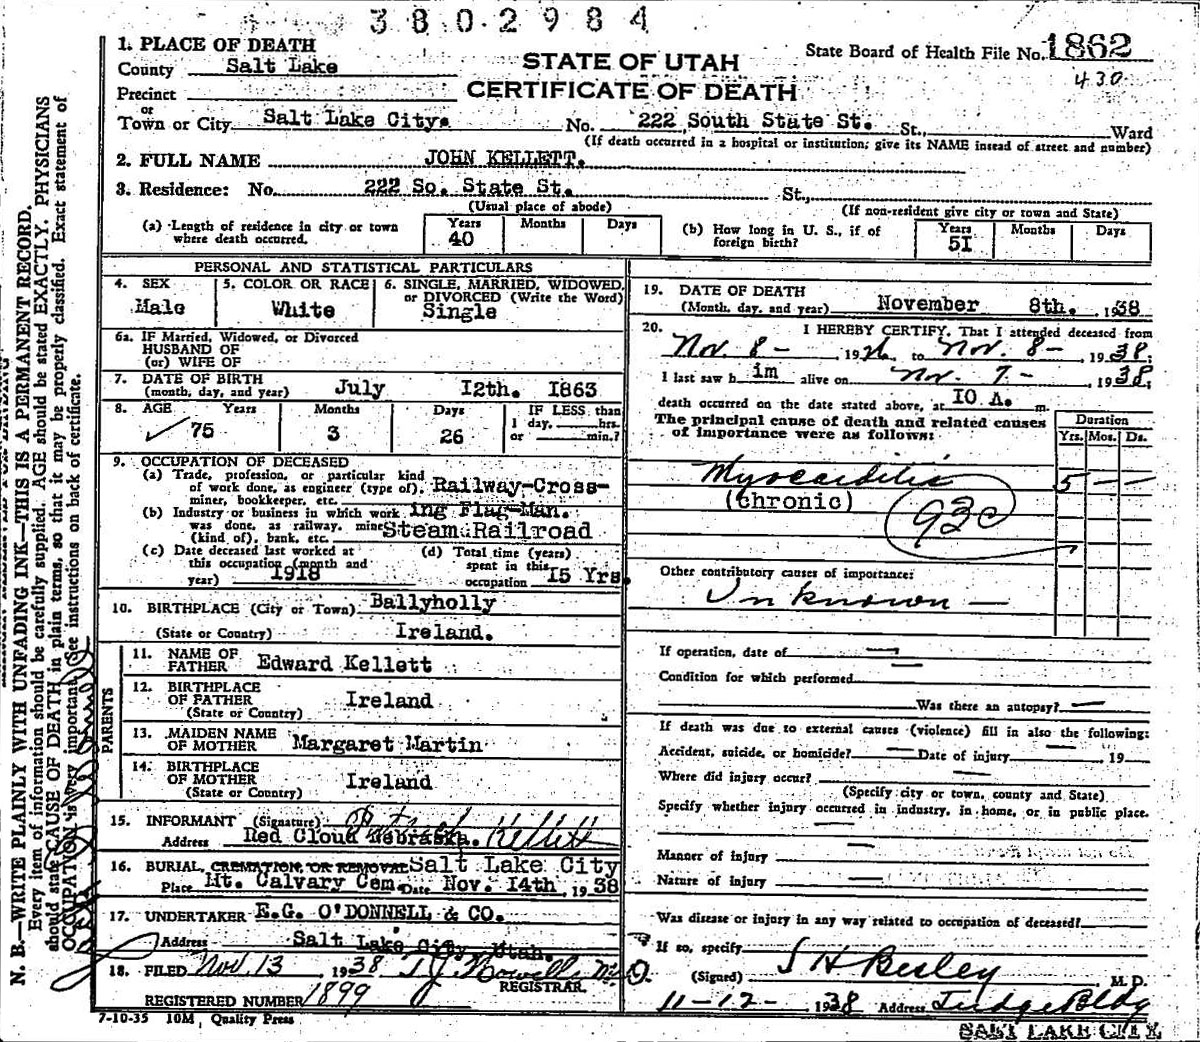 3802984
1. PLACE OF DEATH
County Salt Lake
STATE OF UTAH
State Board of Health File No. 1862
CERTIFICATE OF DEATH
430
Precinct
or
Town or City Salt Lake City. No. 222 South State St. St., Ward
(If death occurred in a hospital or institution, give its NAME instead of street and number)
2. FULL NAME JOHN KELLETT.
3. Residence: No. 222 So. State St. St.,
(Usual place of abode) (If non-resident give city or town and State)
(a) Length of residence in city or town where death occurred. Years 40 Months Days
(b) How long in U. S., if of foreign birth? Years 51 Months Days
PERSONAL AND STATISTICAL PARTICULARS
4. SEX Male
5. COLOR OR RACE White
6. SINGLE, MARRIED, WIDOWED, or DIVORCED (Write the Word) Single
6a. IF Married, Widowed, or Divorced
HUSBAND OF
(or) WIFE OF
7. DATE OF BIRTH
(month, day, and year) July 12th. 1863
8. AGE Years 75 Months 3 Days 26
IF LESS than
1 day, hrs.
or min.?
9. OCCUPATION OF DECEASED
(a) Trade, profession, or particular kind
of work done, as engineer (type of), Railway-Cross-
miner, bookkeeper, etc.
(b) Industry or business in which work ing Flag-Man.
was done, as railway, mine Steam Railroad
(kind of), bank, etc.
(c) Date deceased last worked at
this occupation (month and
year) 1918
(d) Total time (years)
spent in this
occupation 15 Yrs.
10. BIRTHPLACE (City or Town) Ballyholly
(State or Country) Ireland.
PARENTS
11. NAME OF
FATHER Edward Kellett
12. BIRTHPLACE
OF FATHER Ireland
(State or Country)
13. MAIDEN NAME
OF MOTHER Margaret Martin
14. BIRTHPLACE
OF MOTHER Ireland
(State or Country)
15. INFORMANT (Signature) Kellett
Address Red Cloud Nebraska.
16. BURIAL, CREMATION, OR REMOVAL Salt Lake City
Place Mt. Calvary Cem. Date Nov. 14th, 1938
17. UNDERTAKER E.G. O'DONNELL & CO.
Address Salt Lake City, Utah.
18. FILED Nov. 13, 1938
REGISTRAR.
REGISTERED NUMBER 1899
7-10-35 10M, Quality Press
19. DATE OF DEATH
(Month, day, and year) November 8th. 1938
20. I HEREBY CERTIFY, That I attended deceased from
Nov. 8-, 19 to Nov. 8-, 1938,
I last saw him alive on Nov. 7-, 1938,
death occurred on the date stated above, at 10 A. m.
The principal cause of death and related causes
of importance were as follows:
Duration
Yrs. Mos. Ds.
Myocarditis 5 — —
(chronic)
93c
Other contributory causes of importance:
Unknown —
If operation, date of —
Condition for which performed —
Was there an autopsy? —
If death was due to external causes (violence) fill in also the following:
Accident, suicide, or homicide? — Date of injury — 19
Where did injury occur? —
(Specify city or town, county and State)
Specify whether injury occurred in industry, in home, or in public place.
—
Manner of injury —
Nature of injury —
Was disease or injury in any way related to occupation of deceased?
If so, specify
(Signed) S H Besley M. D.
11-12-1938 Address Judge Bldg
SALT LAKE CITY
N. B.—WRITE PLAINLY WITH UNFADING INK—THIS IS A PERMANENT RECORD.
Every item of information should be carefully supplied. AGE should be stated EXACTLY. PHYSICIANS
should state CAUSE OF DEATH in plain terms, so that it may be properly classified. Exact statement of
OCCUPATION is very important. See instructions on back of certificate.